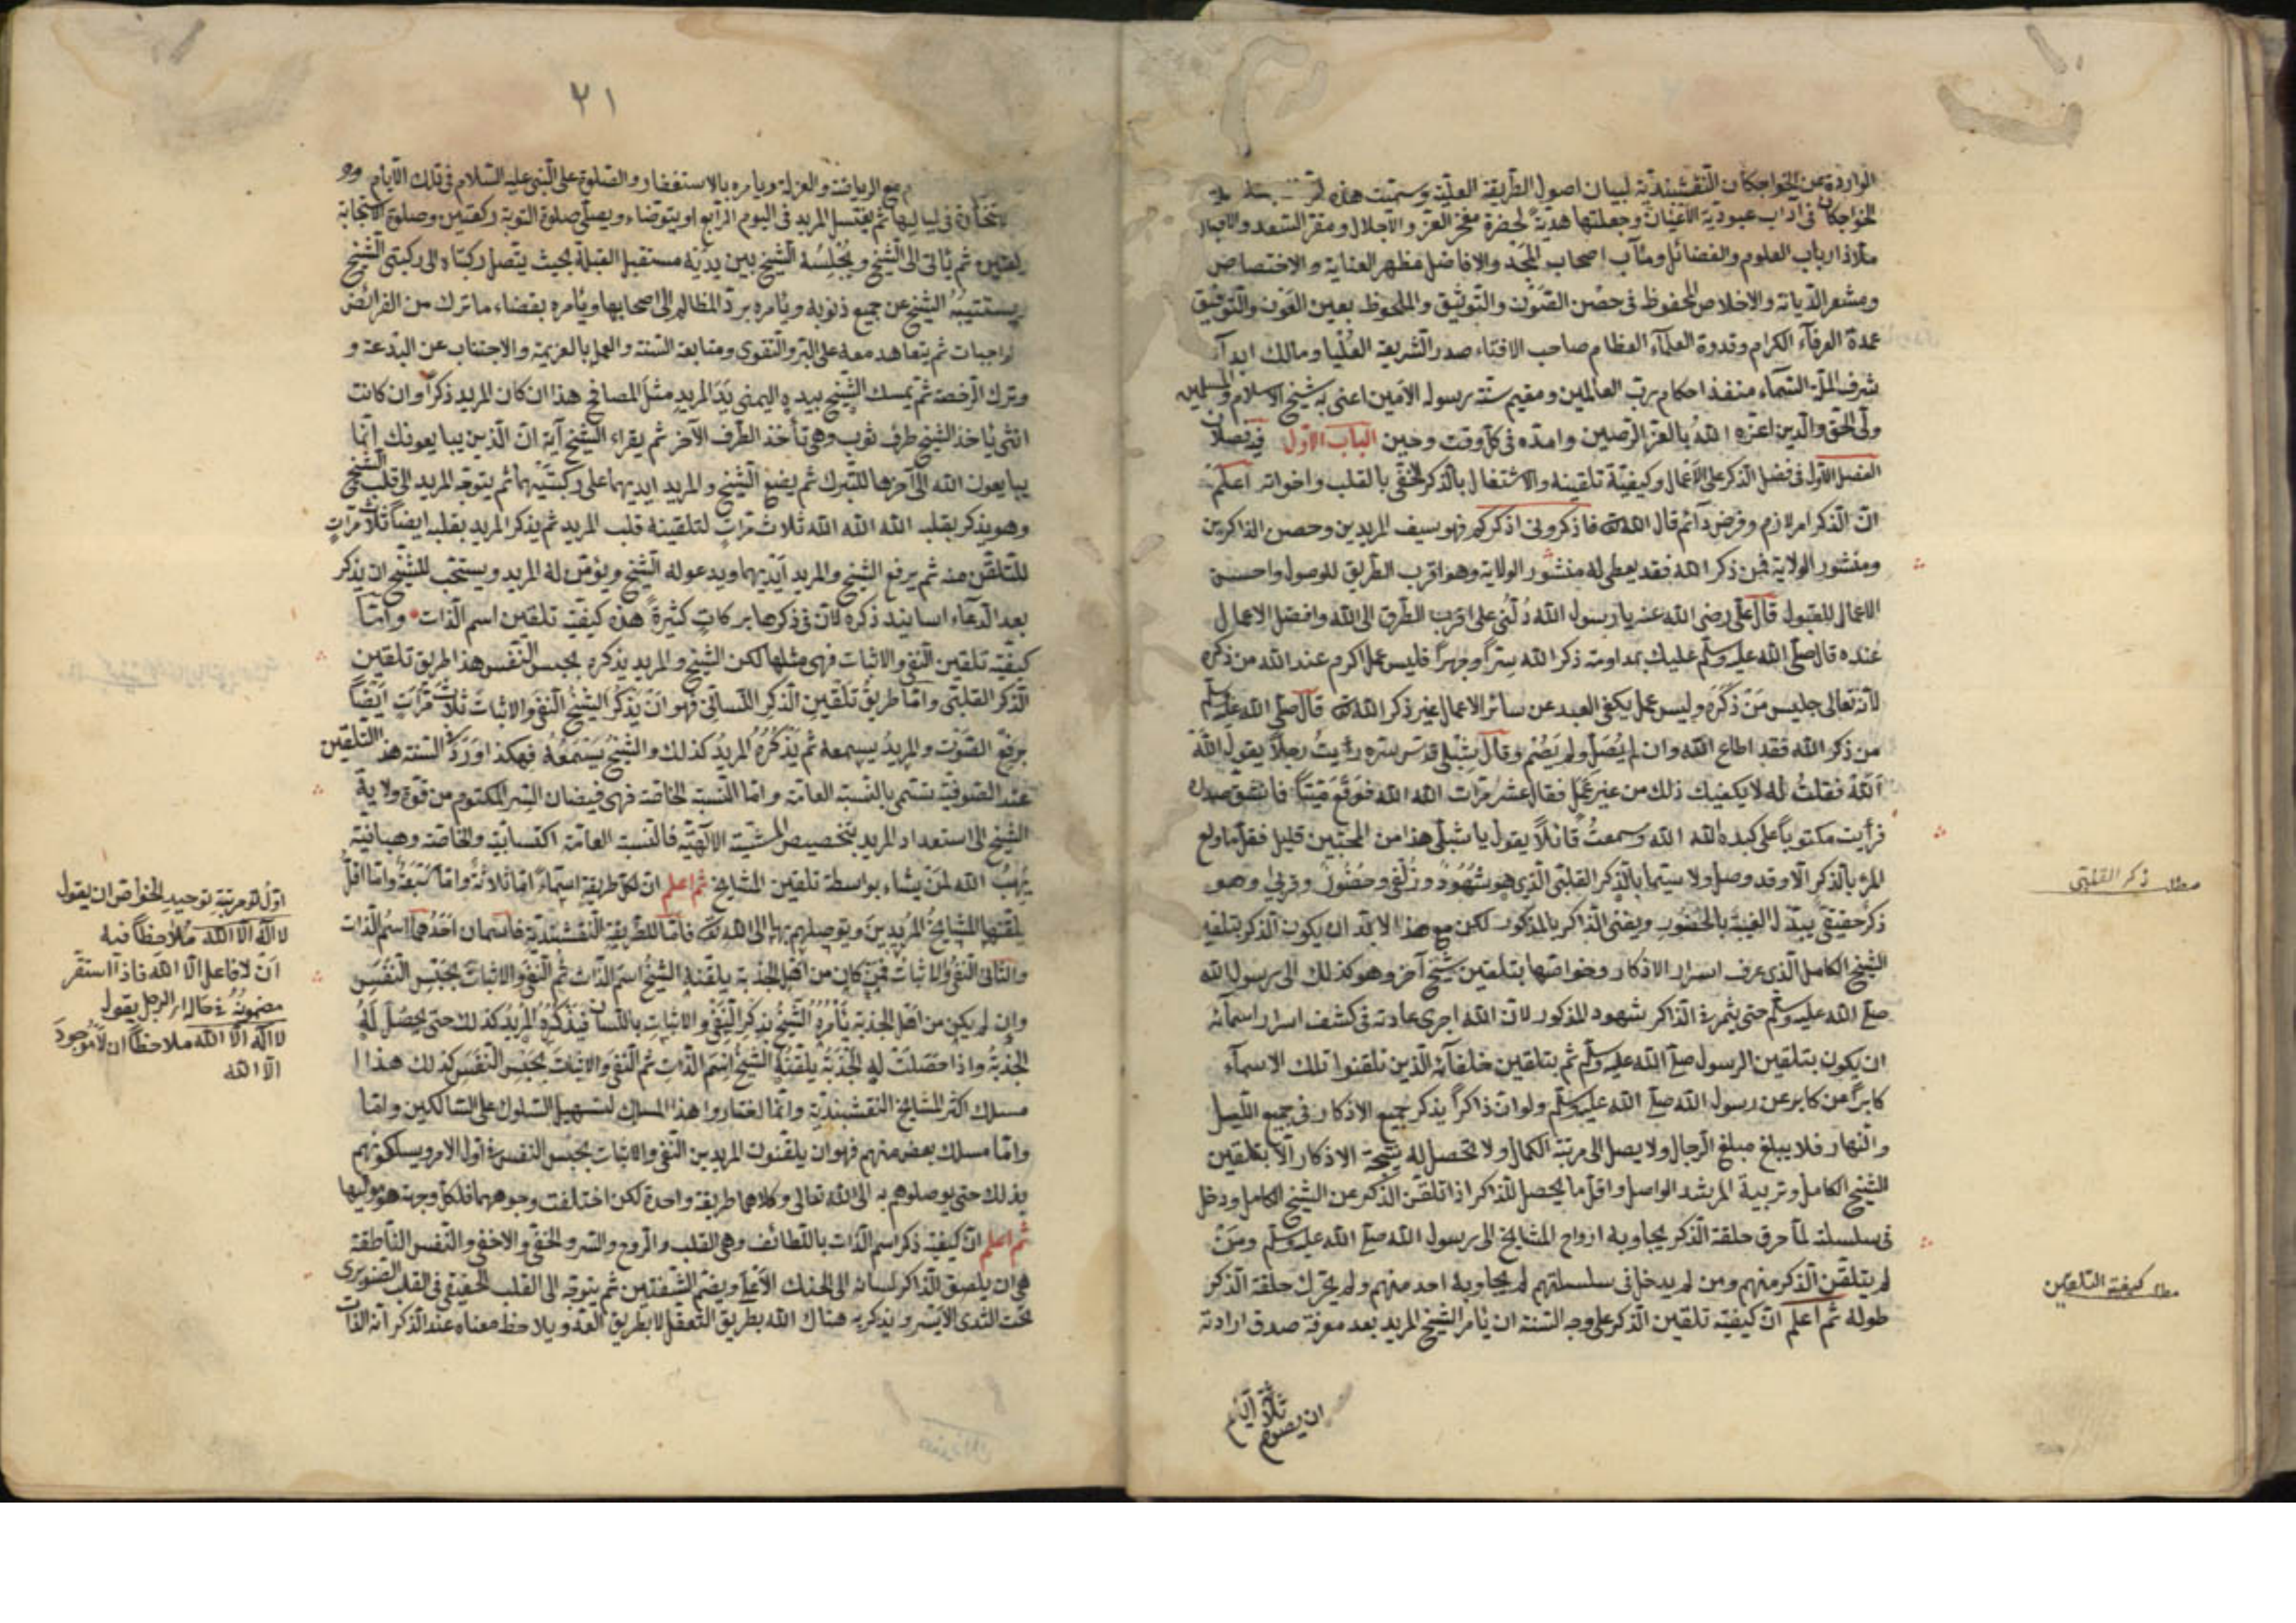 الواردة عن الخواجكان النقشبندية لبيان اصول الطريقة العلية وسميت هذه
الخواجكان فى اداب عبودية الاعيان وجعلتها هدية لحضرة مفخر العز والاجلال ومقر السعد والاقبال
ملاذ ارباب العلوم والفضائل ومآب اصحاب المجد والافاضل مظهر العناية والاختصاص
ومشعر الديانة والاخلاص المحفوظ فى حصن الصون والتوثيق والملحوظ بعين العون والتوفيق
عمدة العرفآء الكرام وقدوة العلمآء العظام صاحب الافتاء صدر الشريعة العليا ومالك ابدآ
شرف الملة السمحاء منفذ احكام رب العالمين ومقيم سنة رسوله الامين اعنى به شيخ الاسلام والمسلمين
ولى الحق والدين اعزه الله بالعز الرصين وامده فى كل وقت وحين الباب الاول فيه فصلان
الفصل الاول فى فضل الذكر على الاعمال وكيفية تلقينه والاشتغال بالذكر الخفى بالقلب واخواته اعلم
ان الذكر امر لازم وفرض دآئم قال الله تع فاذكرونى اذكركم فهو سيف المريدين وحصن الذاكرين
ومنشور الولاية فمن ذكر الله فقد يعطى له منشور الولاية وهو اقرب الطريق للوصول واحسن
الاعمال للقبول قال على رضى الله عنه يا رسول الله دلنى على اقرب الطرق الى الله وافضل الاعمال
عنده قال صلى الله عليه وسلم عليك بمداومة ذكر الله سرا وجهرا فليس عمل اكرم عند الله من ذكره
لانه تعالى جليس من ذكره وليس عمل يكفى العبد عن سائر الاعمال غير ذكر الله تع قال صلى الله عليه وسلم
من ذكر الله فقد اطاع الله وان لم يصل ولم يصم وقال شبلى قدس سره رأيت رجلا يقول الله
الله فقلت له لا يكفيك ذلك من غير عمل فقال عشر مرات الله الله فوقع ميتا فانشق صدره
فرأيت مكتوبا على كبده الله الله وسمعت قائلا يقول يا شبلى هذا من المحبين قليل فقل ما ولع
المرء بالذكر الا وقد وصل ولا سيما بالذكر القلبى الذى هو شهود وزلفى وحضور وقربى وهو
ذكر حقيقى يبدل الغيبة بالحضور ويفنى الذاكر بالمذكور لكن مع هذا لا بد ان يكون الذكر بتلقية
الشيخ الكامل الذى عرف اسرار الاذكار وخواصها بتلقين شيخ آخر وهو كذلك الى رسول الله
صلى الله عليه وسلم حتى يثمر فى الذاكر شهود المذكور لان الله اجرى عادته فى كشف اسرار اسمآئه
ان يكون بتلقين الرسول صلى الله عليه وسلم ثم بتلقين خلفآئه الذين تلقنوا تلك الاسمآء
كابرا عن كابر عن رسول الله صلى الله عليه وسلم ولو ان ذاكرا يذكر جميع الاذكار فى جميع الليل
والنهار فلا يبلغ مبلغ الرجال ولا يصل الى مرتبة الكمال ولا تحصل له نتيجة الاذكار الا بتلقين
الشيخ الكامل وتربية المرشد الواصل واقل ما يحصل للذاكر اذا تلقن الذكر عن الشيخ الكامل ودخل
فى سلسلته لما حرق حلقة الذكر يجاوبه ارواح المشايخ الى رسول الله صلى الله عليه وسلم ومن
لم يتلقن الذكر منهم ومن لم يدخل فى سلسلتهم لم يجاوبه احد منهم ولم يحرك حلقة الذكر
طوله ثم اعلم ان كيفية تلقين الذكر على وجه السنة ان يأمر الشيخ المريد بعد معرفة صدق ارادته
ان يصوم ثلاثة ايام
ذكر القلبى
كيفية التلقين
٢١
مع الرياضة والعزلة ويامره بالاستغفار والصلوة على النبى عليه السلام فى تلك الايام
فى لياليها ثم يغتسل المريد فى اليوم الرابع او يتوضاء ويصلى صلوة التوبة ركعتين وصلوة الاستخابة
ركعتين ثم يأتى الى الشيخ ويجلسه الشيخ بين يديه مستقبل القبلة بحيث يتصل ركبتاه الى ركبتى الشيخ
يستتيبه الشيخ عن جميع ذنوبه ويأمره برد المظالم الى اصحابها ويأمره بقضاء ما ترك من الفرائض
واجبات ثم يتعاهد معه على البر والتقوى ومتابعة السنة والعمل بالعزيمة والاجتناب عن البدعة و
وترك الرخصة ثم يمسك الشيخ بيده اليمنى يد المريد مثل المصافح هذا ان كان المريد ذكرا وان كانت
انثى يأخذ الشيخ طرف ثوب وهى تأخذ الطرف الآخر ثم يقراء الشيخ آية ان الذين يبايعونك انما
يبايعون الله الى آخرها للتبرك ثم يضع الشيخ والمريد ايديهما على ركبتيهما ثم يتوجه المريد الى قلب الشيخ
وهو يذكر بقلبه الله الله الله ثلاث مرات لتلقينه قلب المريد ثم يذكر المريد بقلبه ايضا ثلاث مرات
للتلقن منه ثم يرفع الشيخ والمريد ايديهما ويدعو له الشيخ ويؤمن له المريد ويستحب للشيخ ان يذكر
بعد الدعاء اسانيد ذكره لان فى ذكرها بركات كثيرة هذه كيفية تلقين اسم الذات واما
كيفية تلقين النفى والاثبات فهى مثلها لكن الشيخ والمريد يذكره بحبس النفس هذا طريق تلقين
الذكر القلبى واما طريق تلقين الذكر اللسانى فهو ان يذكر الشيخ النفى والاثبات ثلاث مرات ايضا
برفع الصوت والمريد يسمعه ثم يذكره المريد كذلك والشيخ يستمعه فهكذا اورد فى السنة هذا التلقين
عند الصوفية يسمى بالنسبة العامة واما النسبة الخاصة فهى فيضان السر المكتوم من قوة ولاية
الشيخ الى استعداد المريد بتخصيص المشية الآلهية فالنسبة العامة اكتسابية والخاصة وهبانية
يهب الله لمن يشاء بواسطة تلقين المشايخ ثم اعلم ان لكل طريقة اسمآء اما ثلاثة واما سبعة واما اقل
يلقنها المشايخ المريدين ويوصلهم بها الى الله تع فاما للطريقة النقشبندية فاسمان احدهما اسم الذات
والثانى النفى والاثبات فمن كان من اهل الجذبة يلقنه الشيخ اسم الذات ثم النفى والاثبات بحبس النفس
وان لم يكن من اهل الجذبة يأمره الشيخ بذكر النفى والاثبات باللسان فيذكره المريد كذلك حتى يحصل له
الجذبة واذا حصلت له الجذبة يلقنه الشيخ اسم الذات ثم النفى والاثبات بحبس النفس كذلك هذا
مسلك اكثر المشايخ النقشبندية وانما اختاروا هذا المسلك لتسهيل السلوك على السالكين واما
واما مسلك بعض منهم فهو ان يلقنوت المريدين النفى والاثبات بحبس النفس فى اول الامر ويسلكونهم
بذلك حتى يوصلوهم به الى الله تعالى وكلاهما طريقة واحدة لكن اختلفت وجوههما فلكل وجهة هو موليها
ثم اعلم ان كيفية ذكر اسم الذات باللطائف وهى القلب والروح والسر والخفى والاخفى والنفس الناطقة
هى ان يلصق الذاكر لسانه الى الحنك الاعلى ويضم الشفتين ثم يتوجه الى القلب الحقيقى فى القلب الصنوبرى
تحت الثدى الايسر ويذكر به هناك الله بطريق التعقل لا بطريق العد ويلاحظ معناه عند الذكر انه الذات
اول مرتبة توحيد الخواص ان يقول
لا اله الا الله ملاحظا فيه
ان لا فاعل الا الله فاذا استقر
مضمونه فى حال الرجل يقول
لا اله الا الله ملاحظا ان لا موجود
الا الله